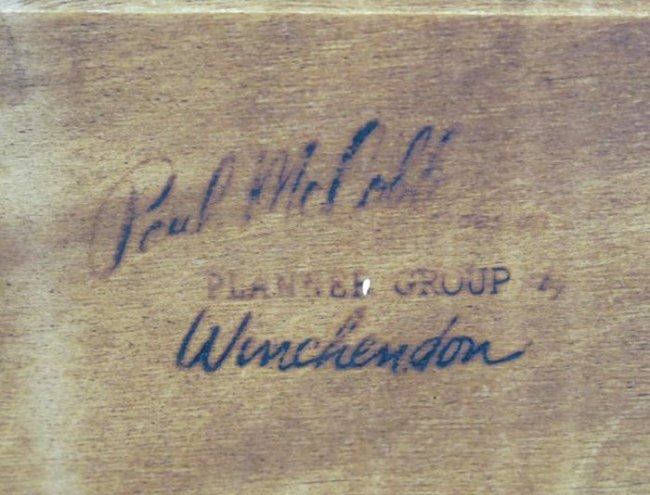 Paul McCobb
PLANNER GROUP
Winchendon